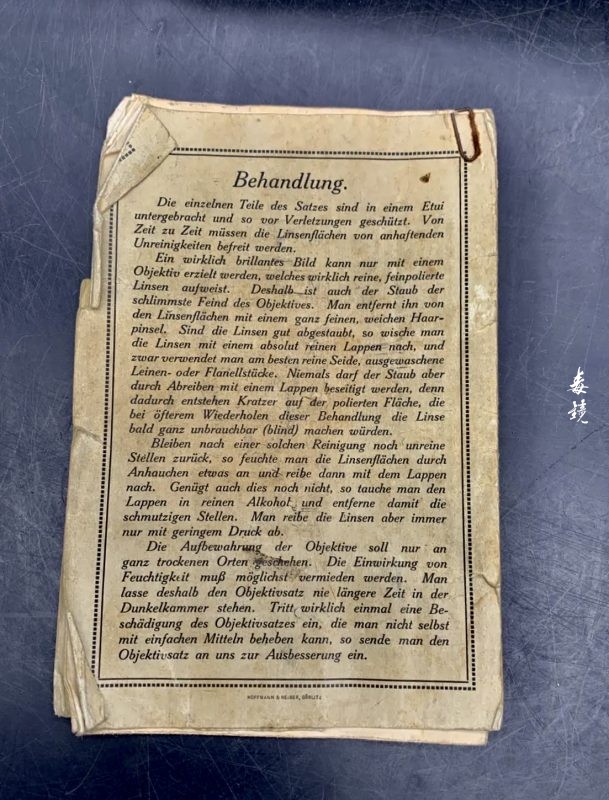 Behandlung.
Die einzelnen Teile des Satzes sind in einem Etui
untergebracht und so vor Verletzungen geschützt. Von
Zeit zu Zeit müssen die Linsenflächen von anhaftenden
Unreinigkeiten befreit werden.
Ein wirklich brillantes Bild kann nur mit einem
Objektiv erzielt werden, welches wirklich reine, feinpolierte
Linsen aufweist. Deshalb ist auch der Staub der
schlimmste Feind des Objektives. Man entfernt ihn von
den Linsenflächen mit einem ganz feinen, weichen Haar-
pinsel. Sind die Linsen gut abgestaubt, so wische man
die Linsen mit einem absolut reinen Lappen nach, und
zwar verwendet man am besten reine Seide, ausgewaschene
Leinen- oder Flanellstücke. Niemals darf der Staub aber
durch Abreiben mit einem Lappen beseitigt werden, denn
dadurch entstehen Kratzer auf der polierten Fläche, die
bei öfterem Wiederholen dieser Behandlung die Linse
bald ganz unbrauchbar (blind) machen würden.
Bleiben nach einer solchen Reinigung noch unreine
Stellen zurück, so feuchte man die Linsenflächen durch
Anhauchen etwas an und reibe dann mit dem Lappen
nach. Genügt auch dies noch nicht, so tauche man den
Lappen in reinen Alkohol und entferne damit die
schmutzigen Stellen. Man reibe die Linsen aber immer
nur mit geringem Druck ab.
Die Aufbewahrung der Objektive soll nur an
ganz trockenen Orten geschehen. Die Einwirkung von
Feuchtigkeit muß möglichst vermieden werden. Man
lasse deshalb den Objektivsatz nie längere Zeit in der
Dunkelkammer stehen. Tritt wirklich einmal eine Be-
schädigung des Objektivsatzes ein, die man nicht selbst
mit einfachen Mitteln beheben kann, so sende man den
Objektivsatz an uns zur Ausbesserung ein.
HOFFMANN & REIBER, GÖRLITZ
毒镜